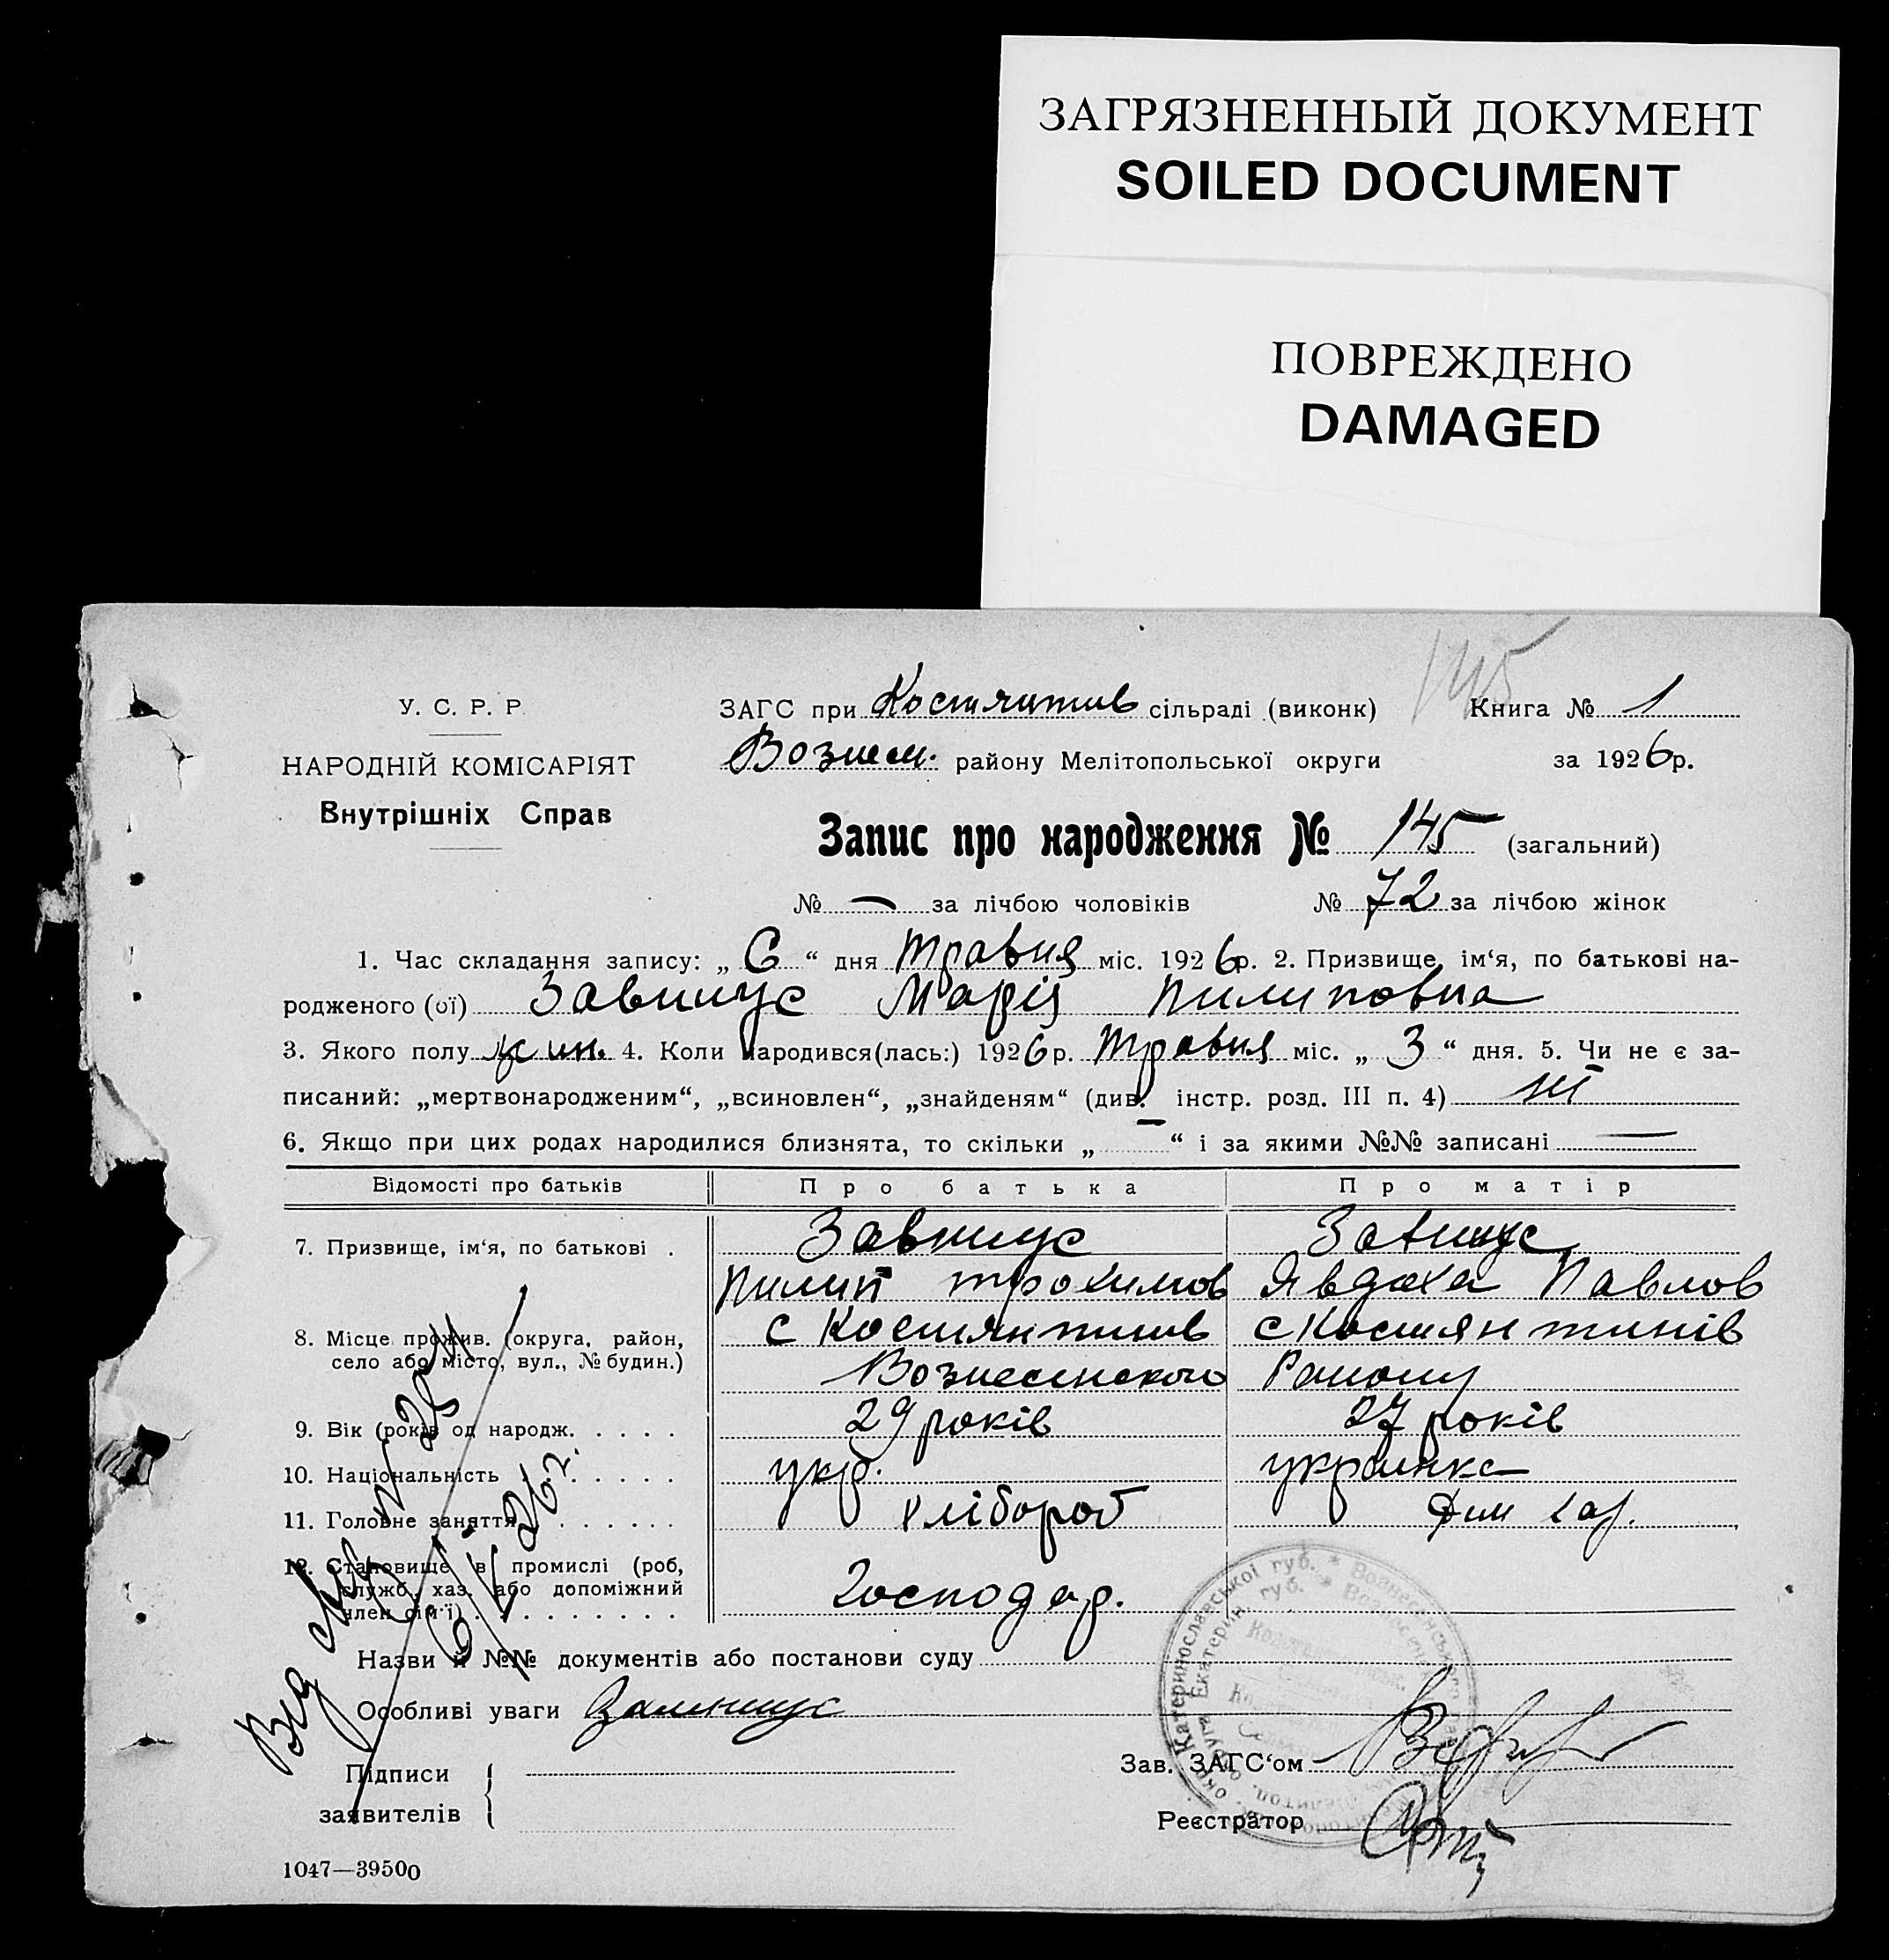 ЗАГРЯЗНЕННЫЙ ДОКУМЕНТ
SOILED DOCUMENT
ПОВРЕЖДЕНО
DAMAGED
145
У. С. Р. Р
НАРОДНІЙ КОМІСАРІЯТ
Внутрішніх Справ
ЗАГС при сільраді (виконк) Книга № 1
Вознесн. району Мелітопольської округи за 1926р.
Запис про народження № 145 (загальний)
№ — за лічбою чоловіків № 72 за лічбою жінок
1. Час складання запису: „ 6 “ дня Травня міс. 1926р. 2. Призвище, ім‘я, по батькові на-
родженого (ої) Марія Пилиповна
3. Якого полу жін. 4. Коли народився(лась:) 1926р. Травня міс. „ 3 “ дня. 5. Чи не є за-
писаний: „мертвонародженим“, „всиновлен“, „знайденям“ (див. інстр. розд. III п. 4) ні
6. Якщо при цих родах народилися близнята, то скільки „ — “ і за якими №№ записані —
Відомості про батьків Про батька Про матір
7. Призвище, ім‘я, по батькові .
Пилип Трохимов Явдоха Павлов
8. Місце прожив. (округа, район,
село або місто, вул., № будин.)
с Костянтинів с Костянтинів
Вознесенского Району
9. Вік (років од народж. . . . . 29 років 27 років
10. Національність . . . . . . . укр. украинка
11. Головне заняття . . . . . . . хлібороб дом хаз.
12. Становище в промислі (роб,
служб., хаз. або допоміжний
член сім‘ї) . . . . . . . . . . Господар.
Назви й №№ документів або постанови суду
Особливі уваги
Підписи
заявителів
Зав. ЗАГС‘ом
Реєстратор
1047—39500